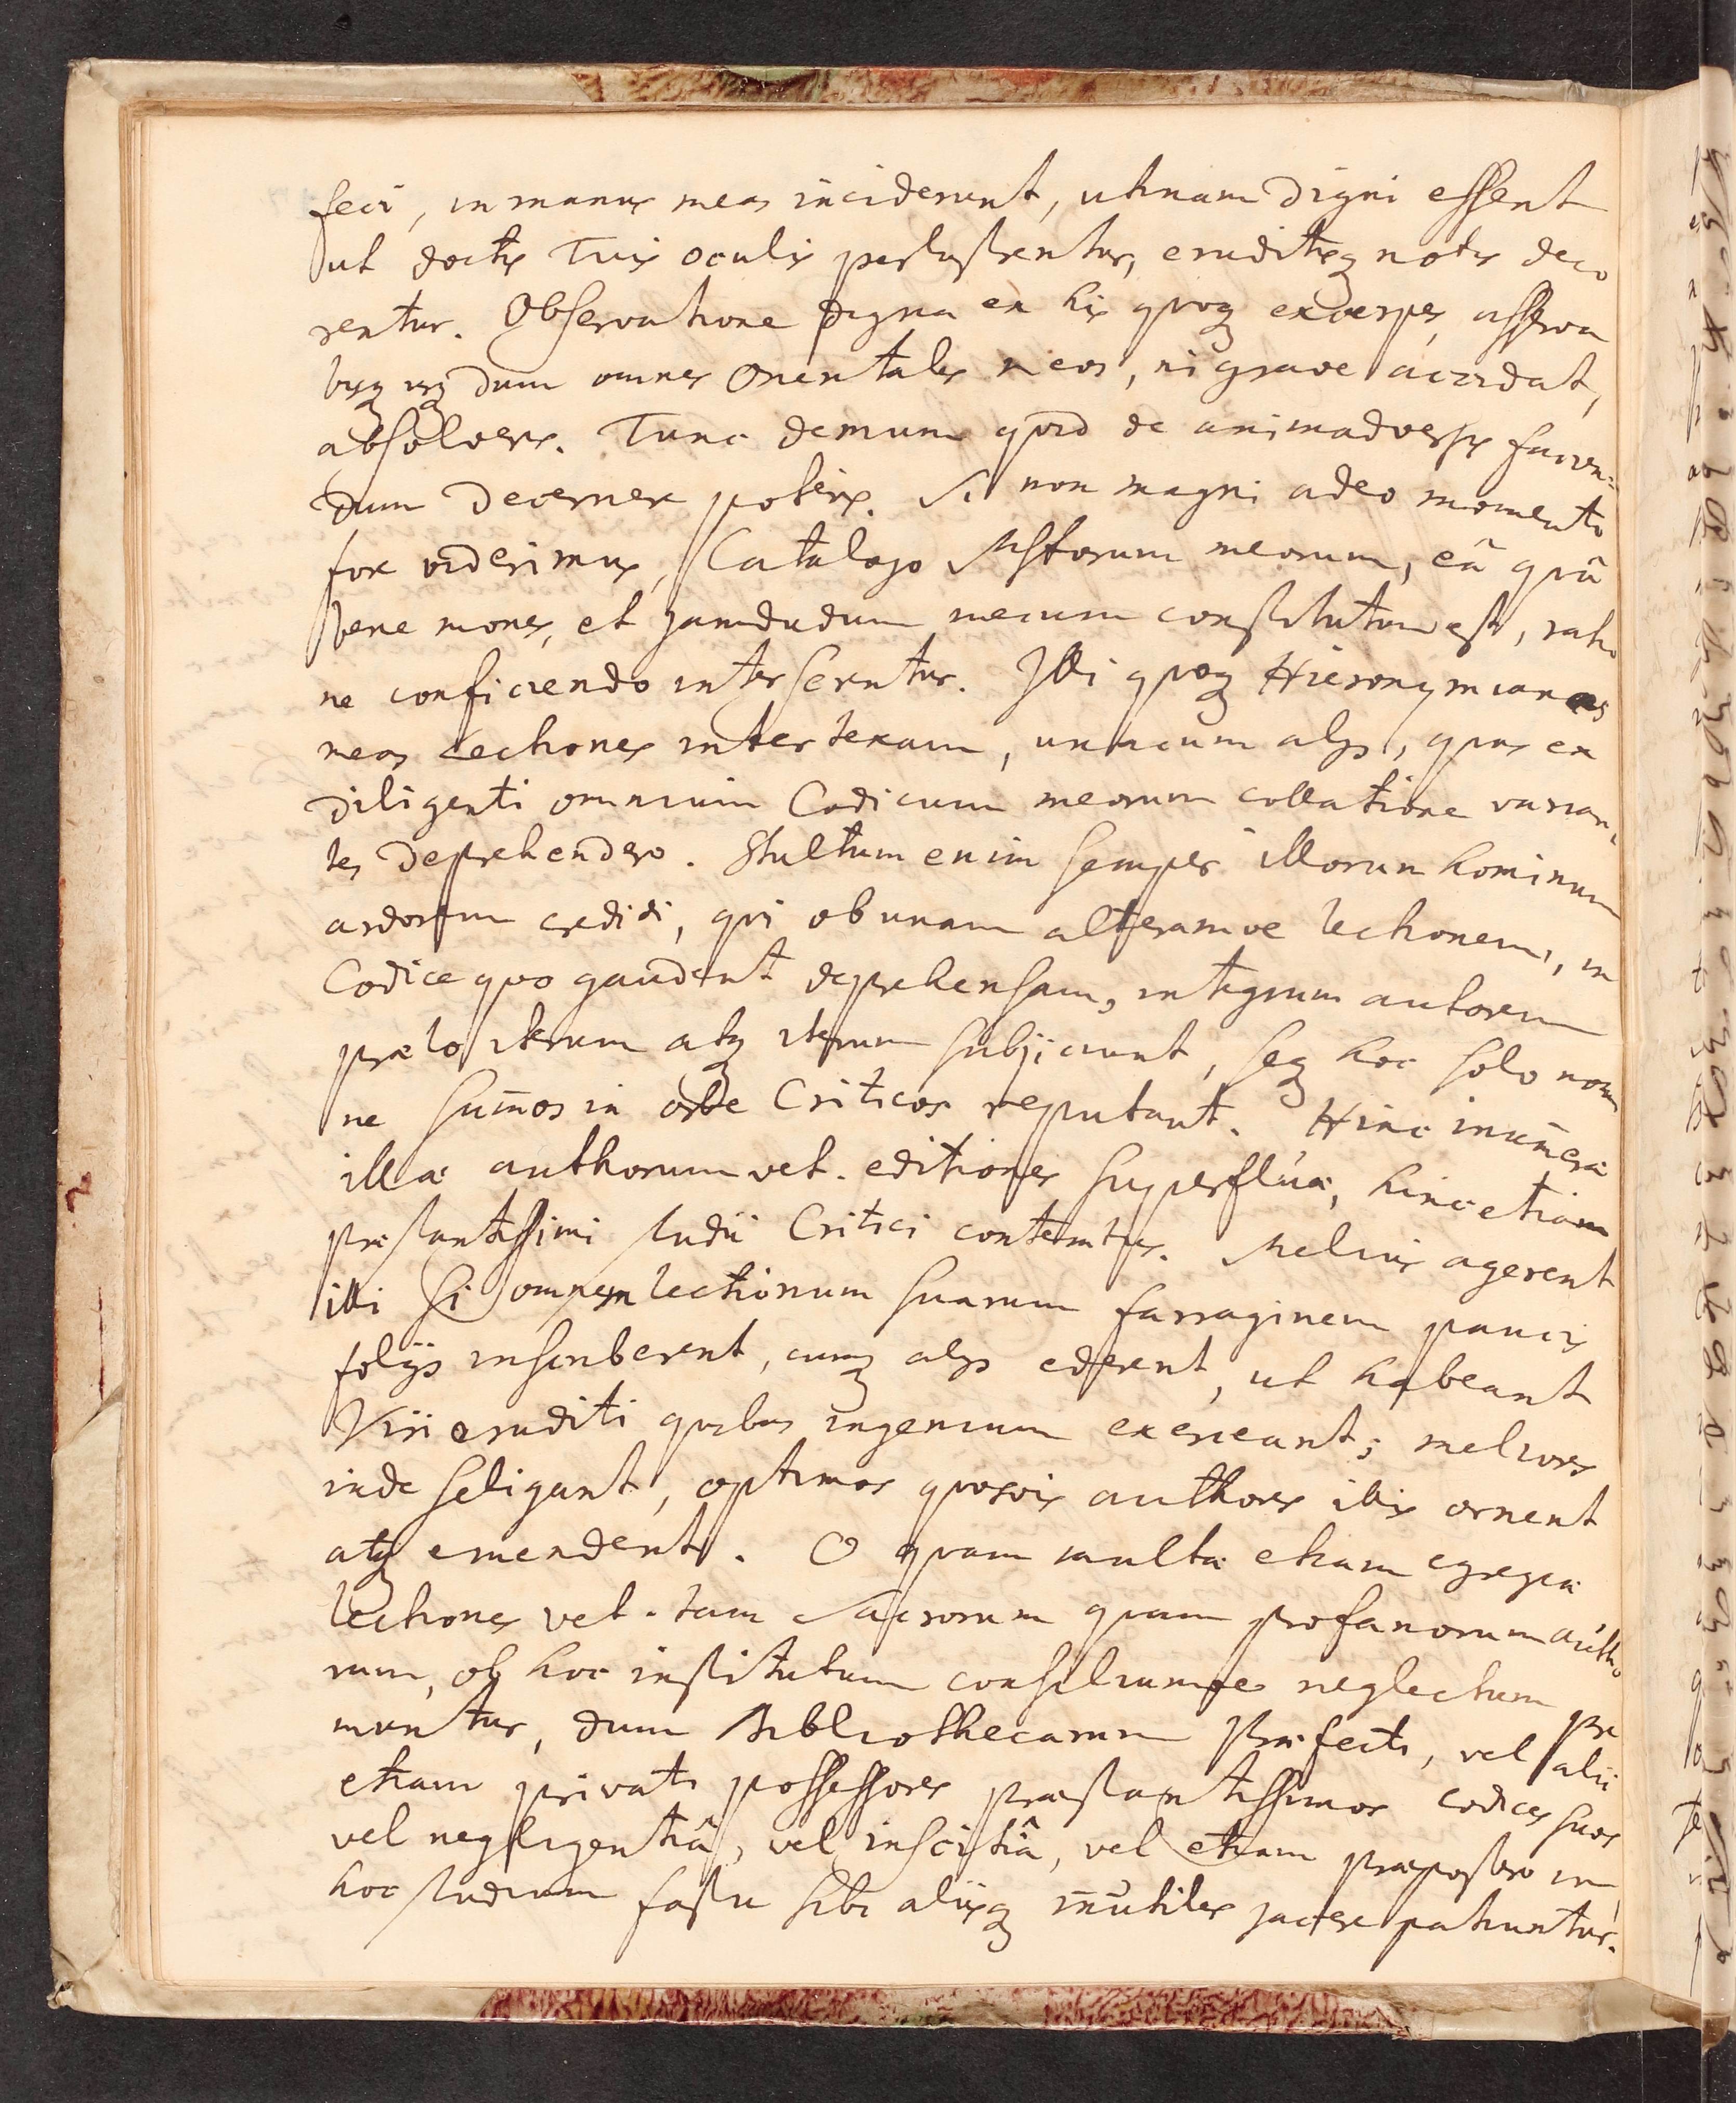 feci, in manus meas inciderunt, utinam digni essent
ut doctis Tuis oculis perlustrentur, eruditisq notis deco
rentur. Observatione digna ex his quoq excerpes, asserva
bisq usq dum omnes Orientales meos, ni grave accidat,
absolveris. Tunc demum quid de animadversis facien=
dum decernere poteris. Si non magni adeo momenti
fore viderimus, Catalogo Mstorum meorum, eâ quâ
bene mones, et jamdudum mecum constitutum est, ratio
ne conficiendo inserentur. Illi quoq Hieronymianas
meas Lectiones intertexam, unacum alijs, quas ex
diligenti omnium Codicum meorum collatione varian
tes deprehendero. Stultum enim semper illorum hominum
ardorem credidi, qui ob unam alteramve lectionem, in
Codice quo gaudent deprehensam, integrum autorem
prælo iterum atq iterum subjiciunt, seq hoc solo nomi
ne sum̄os in orbe Criticos reputant. Hinc inum̄eræ
illæ authorum vet. editiones superfluæ, hinc etiam
præstantissimi studii Critici contemtus. Melius agerent
illi si omnem lectionum suarum farraginem paucis
folijs inscriberent, cumq alijs ederent, ut habeant
Viri eruditi quibus ingenium exerceant; meliores
inde seligant, optimos quosvis authores illis ornent
atq emendent. O quam multæ etiam egregiæ
lectiones vet. tam Sacrorum quam profanorum autho
rum, ob hoc institutum consiliumve neglectum pre
muntur, dum Bibliothecarum Præfecti, vel alii
etiam privati possessores præstantissimos codices suos
vel negligentiâ, vel inscitiâ, vel etiam præpostero in
hoc studium fastu sibi aliisq inutiles jacere patiuntur.